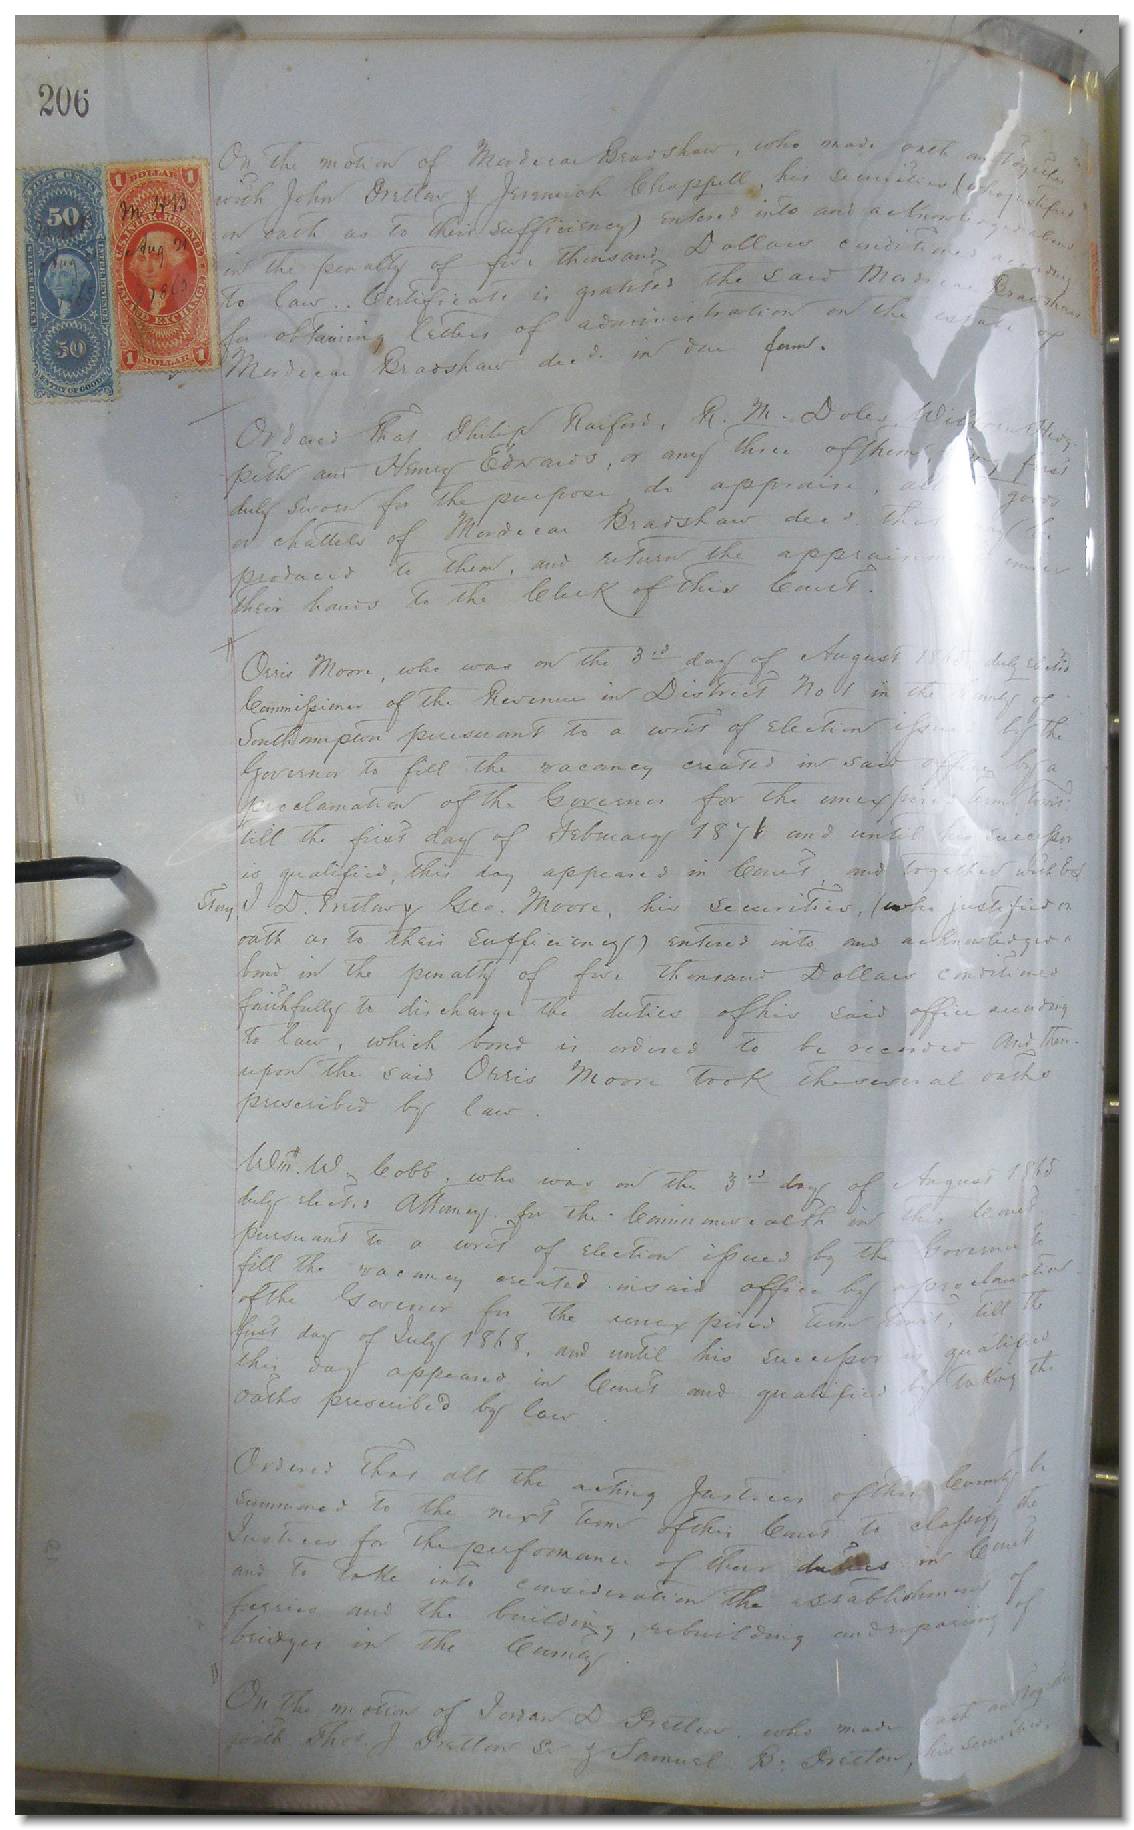 206
FIFTY CENTS
50
50
1 DOLLAR 1
U.S. INTER. REVENUE
Aug 21
1865
INLAND EXCHANGE
1 DOLLAR 1
On the motion of Mordecai Bradshaw, who made oath and together
with John Pretlow & Jeremiah Chappell, his securities (who justified
on oath as to their sufficiency) entered into and acknowledged a bond
in the penalty of five thousand Dollars conditioned according
to law. Certificate is granted the said Mordecai Bradshaw
for obtaining letters of administration on the estate of
Mordecai Bradshaw decd. in due form.
Ordered that Philip Raiford, R. M. Doles,
and Henry Edwards, or any three of them, first
duly sworn for the purpose do appraise, goods
or chattels of Mordecai Bradshaw decd. that
produced to them, and return the under
their hands to the Clerk of this Court.
Orris Moore, who was on the 3rd day of August 1865 duly elected
Commissioner of the Revenue in District No 1 in the County of
Southampton pursuant to a writ of election issued by the
Governor to fill the vacancy created in said office by a
proclamation of the Governor for the unexpired term towit:
till the first day of February 187 and until his successor
is qualified, this day appeared in Court, and together with
D. Pretlow & Geo. Moore, his securities, (who justified on
oath as to their sufficiency) entered into and acknowledged a
bond in the penalty of five thousand Dollars conditioned
faithfully to discharge the duties of his said office according
to law, which bond is ordered to be recorded And there-
upon the said Orris Moore took the several oaths
prescribed by law.
Wm. W. Cobb, who was on the 3rd day of August 1865
duly elected Attorney for the Commonwealth in this Court
pursuant to a writ of election issued by the Governor to
fill the vacancy created in said office by a proclamation
of the Govenor for the unexpired term towit, till the
first day of July 1868, and until his successor is qualified
this day appeared in Court and qualified by taking the
oaths prescribed by law.
Ordered that all the acting Justices of this County be
summoned to the next term of this Court to classify the
Justices for the performance of their duties in Court
and to take into consideration the establishment of
ferries and the building, rebuilding and repairing of
bridges in the County.
On the motion of Jordan D Pretlow who made oath and together
with Thos. J Pretlow Sr & Samuel B. Pretlow, his securities,